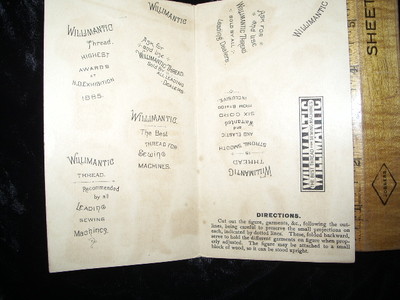 WILLIMANTIC
Thread.
HIGHEST
AWARDS
AT
N.O. EXHIBITION
1885.
Ask for
and use
WILLIMANTIC THREAD.
Sold by
ALL LEADING
DEALERS
WILLIMANTIC
THREAD.
Recommended
by all
LEADING
SEWING
Machines.
WILLIMANTIC
The Best
THREAD FOR
Sewing
MACHINES.
Ask for
and use
WILLIMANTIC
THREAD
SOLD BY ALL
Leading Dealers
WILLIMANTIC
WILLIMANTIC
THREAD
STRONG, SMOOTH
AND ELASTIC
and
Warranted
SIX CORD
INCLUSIVE.
WILLIMANTIC
WILLIMANTIC
DIRECTIONS.
Cut out the figure, garments, &c., following the out-
lines, being careful to preserve the small projections on
each, indicated by dotted lines. These, folded backward,
serve to hold the different garments on figure when prop-
erly adjusted. The figure may be attached to a small
block of wood, so it can be stood upright.
SHEET